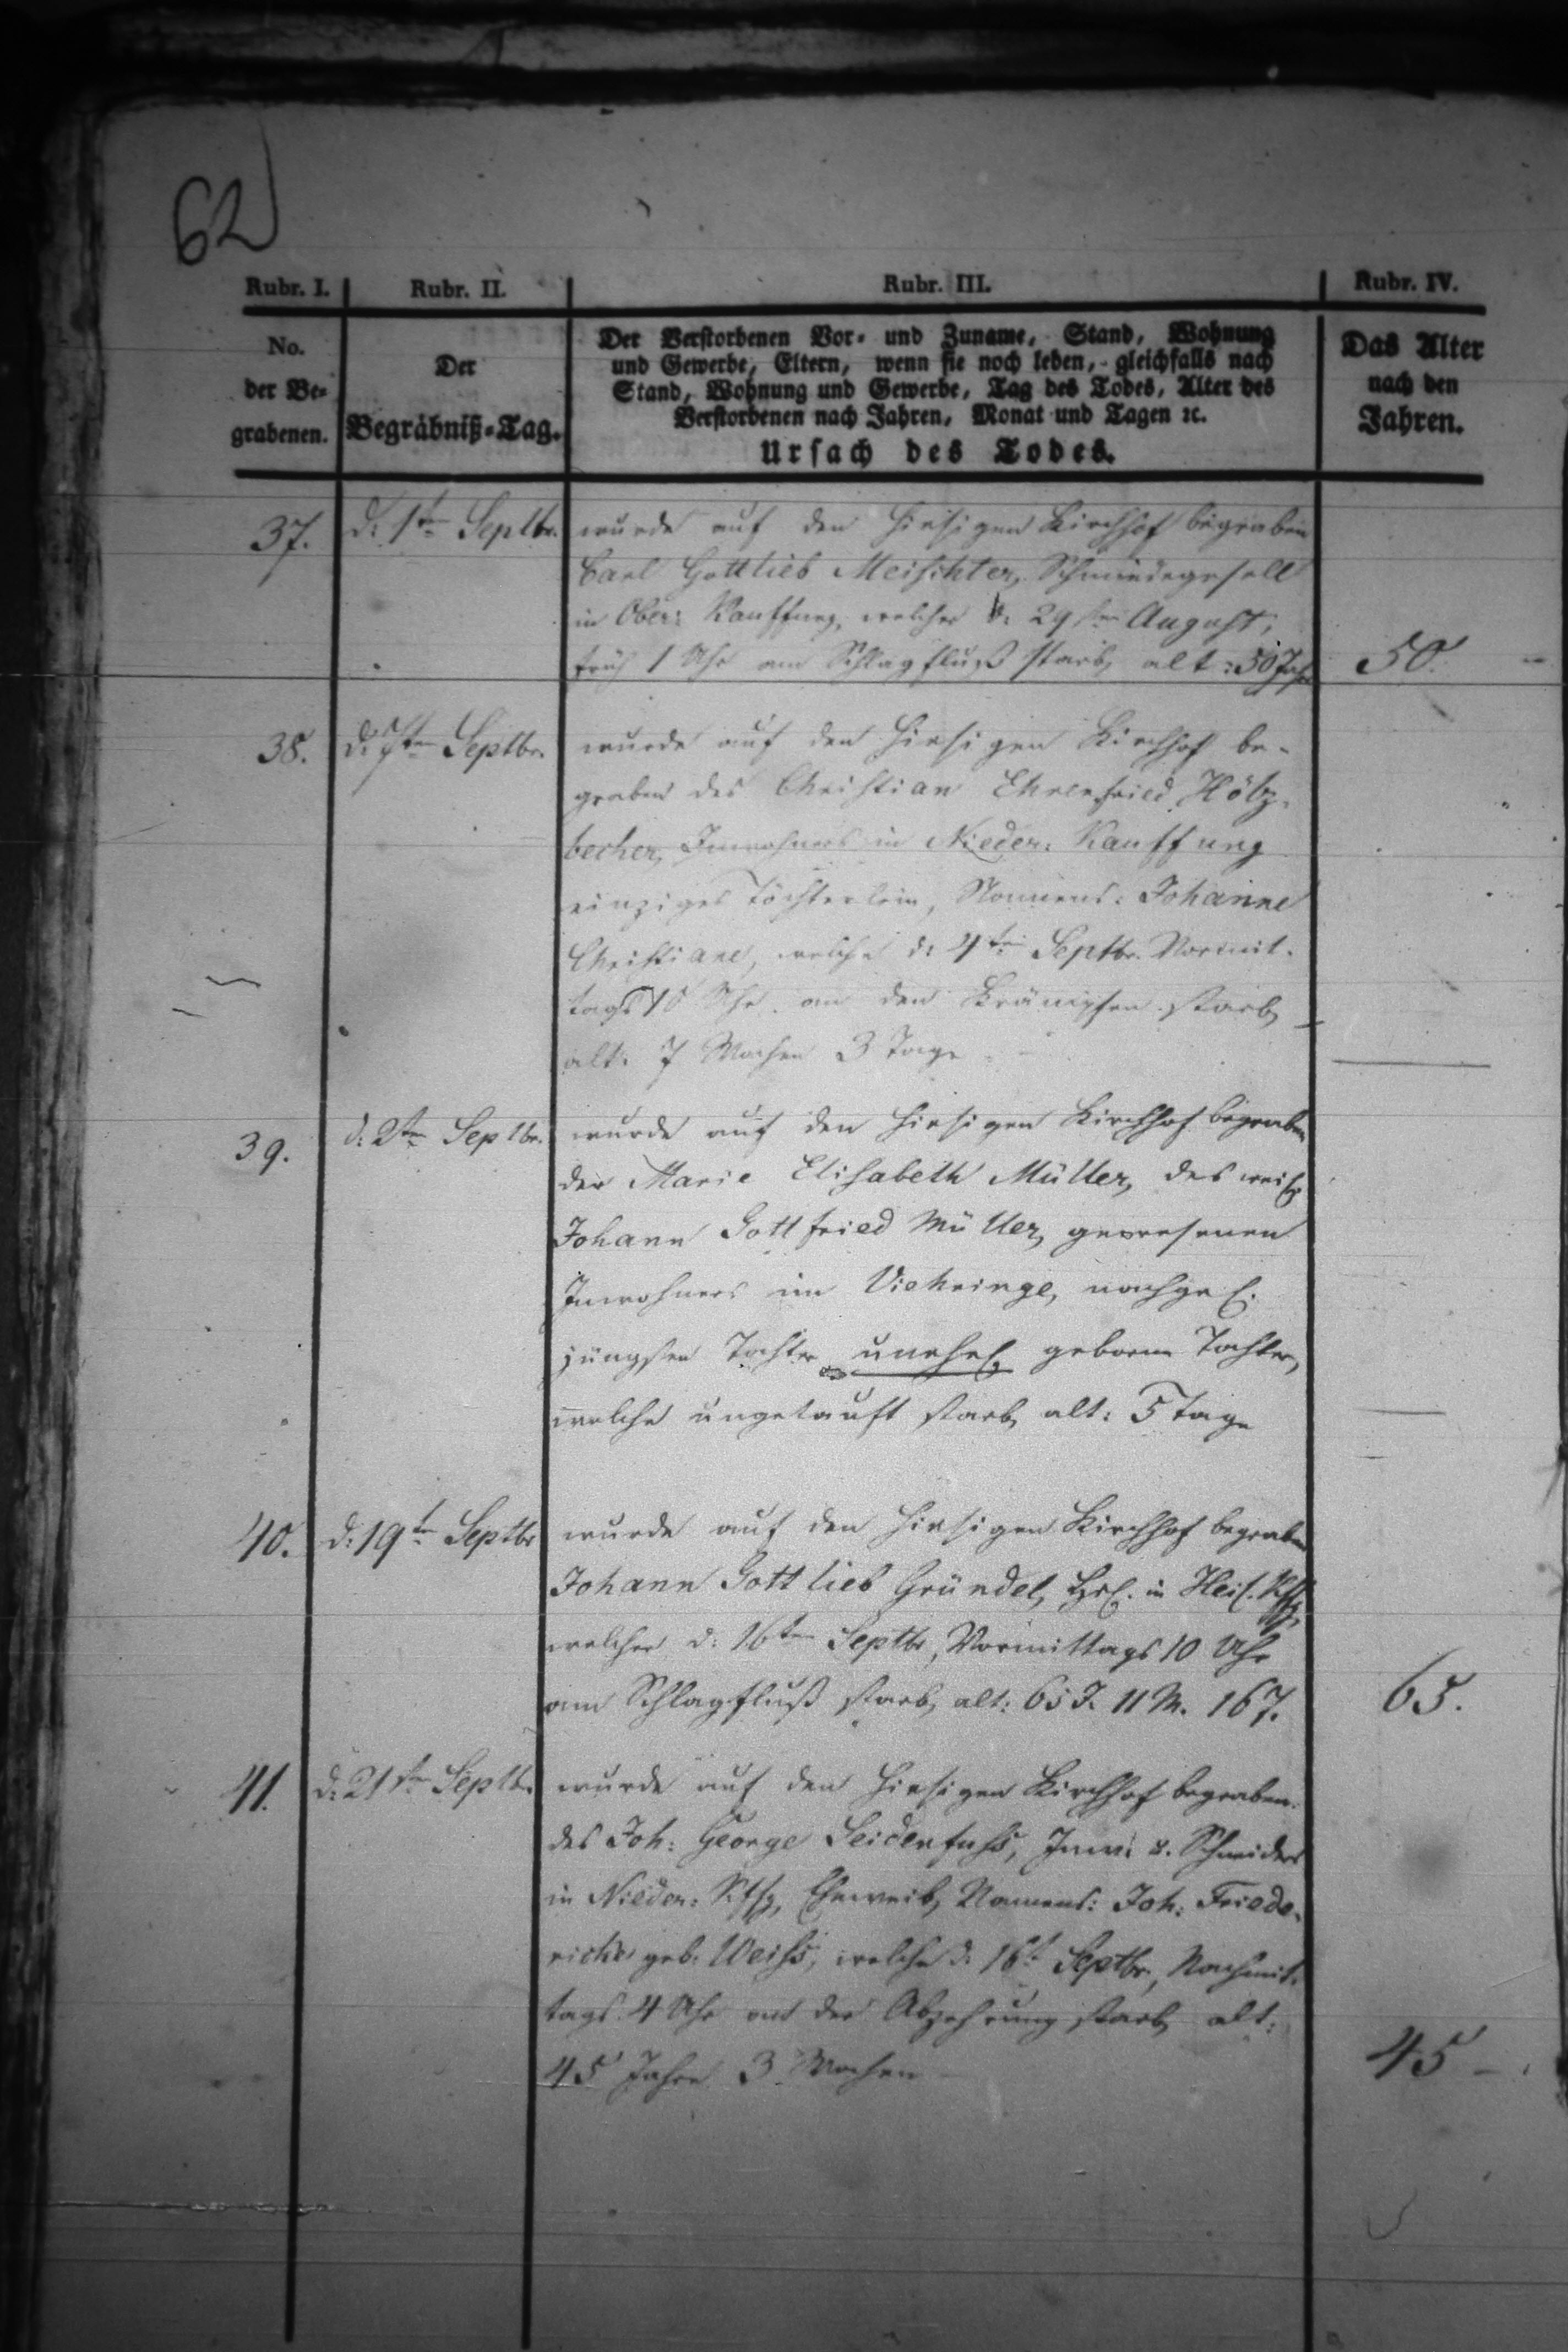 62
Rubr. I. Rubr. II. Rubr. III. Rubr. IV.
No.
der Be-
grabenen.
Der
Begräbniß-Tag.
Der Verstorbenen Vor- und Zuname, Stand, Wohnung
und Gewerbe, Eltern, wenn sie noch leben, gleichfalls nach
Stand, Wohnung und Gewerbe, Tag des Todes, Alter des
Verstorbenen nach Jahren, Monat und Tagen ꝛc.
Ursach des Todes.
Das Alter
nach den
Jahren.
37. d: 1ten Septbr. wurde auf den hiesigen Kirchhof begraben
Carl Gottlieb Meischter, Schmiedegesell
in Ober: Kauffung, welcher d: 29ten August,
früh 1 Uhr am Schlagfluß starb, alt: 50 Jahr 50.
38. d: 7ten Septbr. wurde auf den hiesigen Kirchhof be-
graben des Christian Ehrenfried Hölz-
becher, Inwohners in Nieder: Kauffung
einziges Töchterlein, Namens: Johanne
Christiane, welche d: 4ten Septbr. Vormit-
tags 10 Uhr an den Krämpfen starb
alt: 7 Wochen 3 Tage
39. d: 2ten Septbr. wurde auf den hiesigen Kirchhof begraben
der Marie Elisabeth Müller, des weil.
Johann Gottfried Müller, gewesenen
Inwohners im Viehringe, nachgel.
jüngsten Tochter unehel. geborne Tochter,
welche ungetauft starb, alt: 5 Tage
40. d: 19ten Septbr wurde auf den hiesigen Kirchhof begraben
Johann Gottlieb Gründel, in
welcher d: 16ten Septbr, Vormittags 10 Uhr
am Schlagfluß starb, alt: 65 J. 11 M. 16 T. 65.
41. d: 21ten Septbr. wurde auf den hiesigen Kirchhof begraben
des Joh: George Seidenfuhs, Inw: u. Schneiders
in Nieder: Kffg, Eheweib, Namens: Joh: Friede-
ricke geb. Weihs, welche d: 16t Septbr, Nachmit-
tags 4 Uhr an der Abzehrung starb, alt:
45 Jahre 3 Wochen 45 -